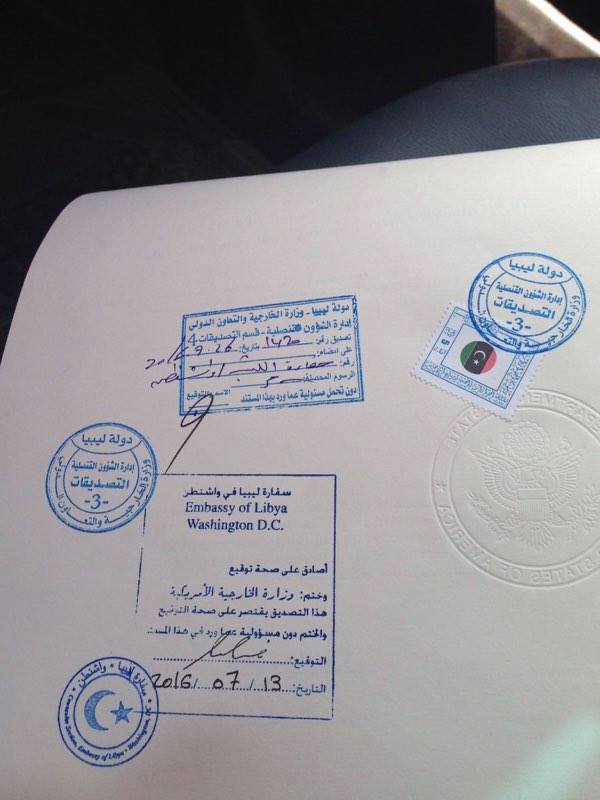 دولة ليبيا
إدارة الشؤون القنصلية
التصديقات
-3-
وزارة الخارجية والتعاون الدولي
دولة ليبيا - وزارة الخارجية والتعاون الدولي
إدارة الشؤون القنصلية - قسم التصديقات 4
تصديق رقم: 1420 بتاريخ:
على إمضاء:
رقم:
الرسوم المحصلة: الاسم والتوقيع
دون تحمل مسئولية عما ورد بهذا المستند
5
دولة ليبيا
إدارة الشؤون القنصلية
التصديقات
-3-
وزارة الخارجية والتعاون الدولي
سفارة ليبيا في واشنطر
Embassy of Libya
Washington D.C.
أصادق على صحة توقيع
وختم: وزارة الخارجية الأمريكية
هذا التصديق يقتصر على صحة التوقيع
والختم دون مسؤولية عما ورد في هذا المستند
التوقيع:
التاريخ: 2016/07/13
سفارة ليبيا • واشنطن
Consular Section, Embassy of Libya - Washington, DC
DEPARTMENT OF STATE
UNITED STATES OF AMERICA